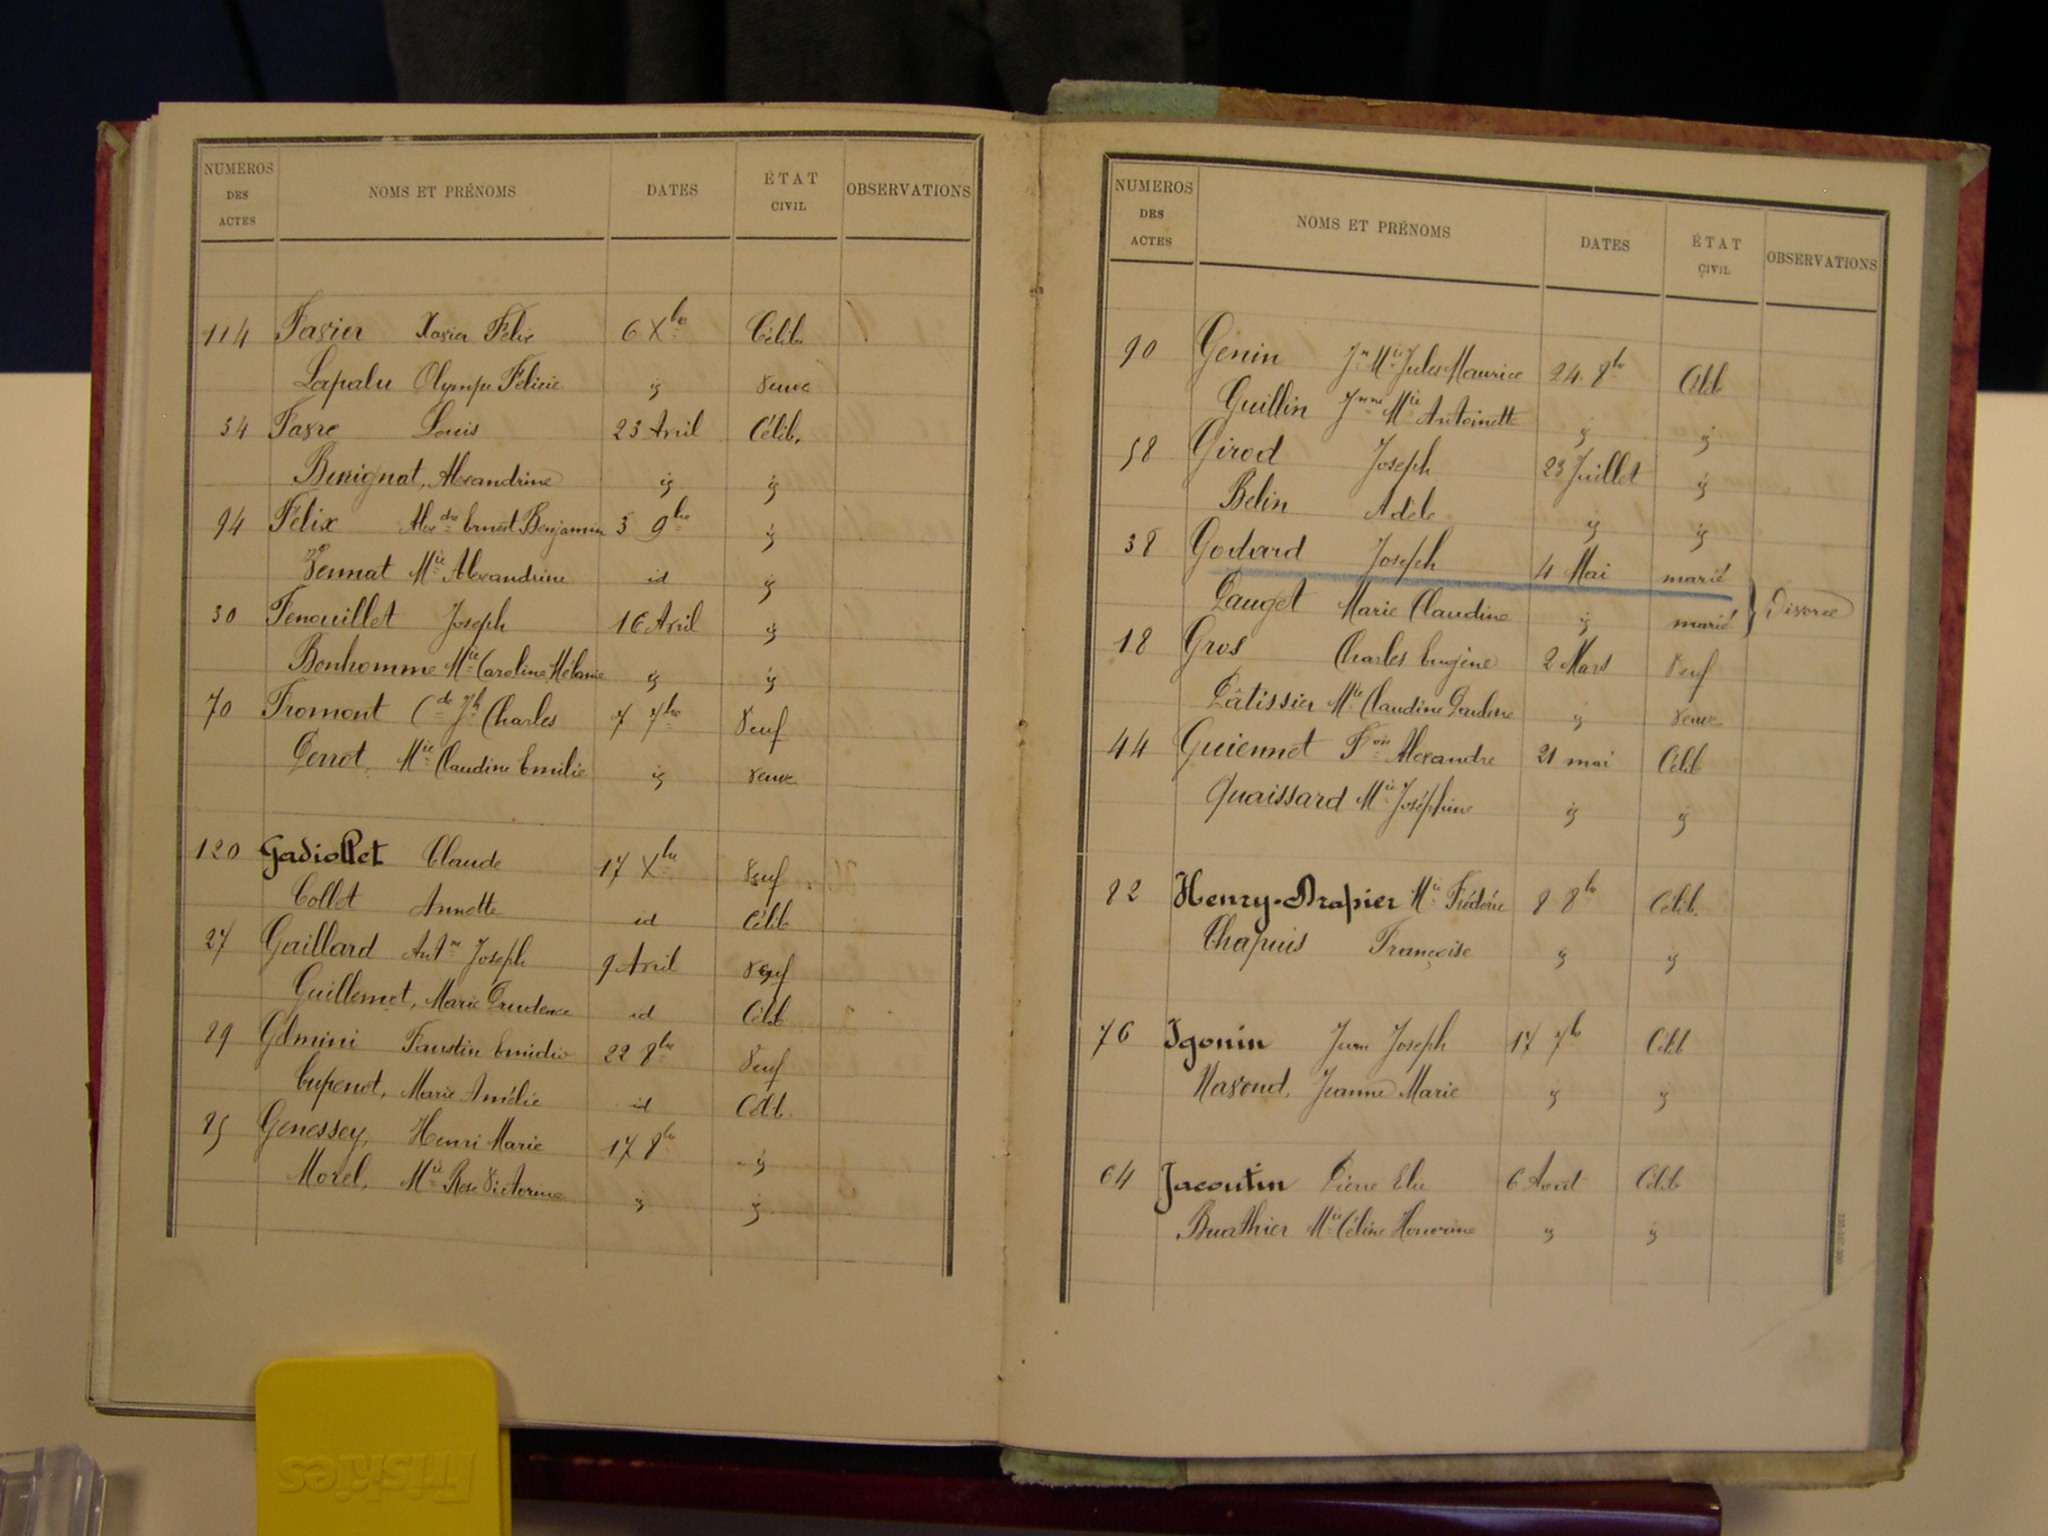 NUMEROS DES ACTES NOMS ET PRÉNOMS DATES ÉTAT CIVIL OBSERVATIONS
114 Favier Xavier Félix 6 Xbre Célib.
Lapalu Olympe Félicie id veuve
34 Favre Louis 23 Avril Célib.
Benignat, Alexandrine id id
94 Félix Alexdre Ernest Benjamin 3 9bre id
Vennat Mie Alexandrine id id
30 Fenouillet Joseph 16 Avril id
Bonhomme Mie Caroline Mélanie id id
70 Fromont Cde Jh Charles 7 7bre Veuf
Perrot, Mie Claudine Emilie id veuve
120 Gadiollet Claude 17 Xbre Veuf
Collet Annette id Célib
27 Gaillard Antne Joseph 9 Avril veuf
Guillemot, Marie Prudence id Célib
89 Gelmini Faustin Emidio 22 8bre Veuf
Cupenot, Marie Amélie id Célib.
85 Genessey, Henri Marie 17 8bre id
Morel, Mie Rose Victorine id id
NUMEROS DES ACTES NOMS ET PRÉNOMS DATES ÉTAT CIVIL OBSERVATIONS
90 Genin Jn Mie Jules Maurice 24 8bre Célib
Guillin Jnne Mie Antoinette id id
58 Girod Joseph 23 Juillet id
Belin Adèle id id
38 Godard Joseph 4 Mai marié
Pauget Marie Claudine id marié } Divorce
18 Gros Charles Eugène 2 Mars Veuf
Pâtissier Mie Claudine id veuve
44 Guiennet Fois Alexandre 21 mai Célib
Quaissard Mie Joséphine id id
82 Henry-Drapier Mie Frédéric 8 8bre Célib.
Chapuis Françoise id id
76 Igonin Jean Joseph 17 7bre Célib
Navoud, Jeanne Marie id id
64 Jacoutin Pierre 6 Aout Célib
Buathier Mie Céline Honorine id id
Friskies